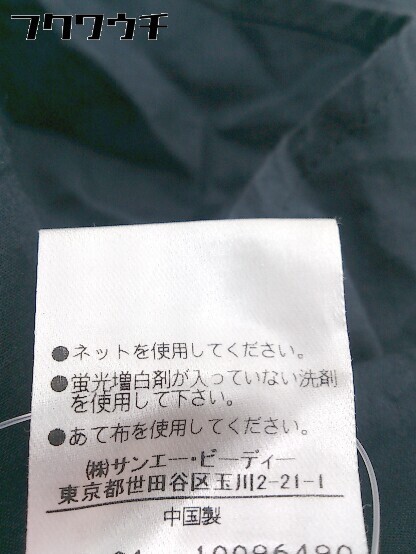 フクワウチ
●ネットを使用してください。
●蛍光増白剤が入っていない洗剤
を使用して下さい。
●あて布を使用してください。
㈱サンエー・ビーディー
東京都世田谷区玉川2-21-1
中国製